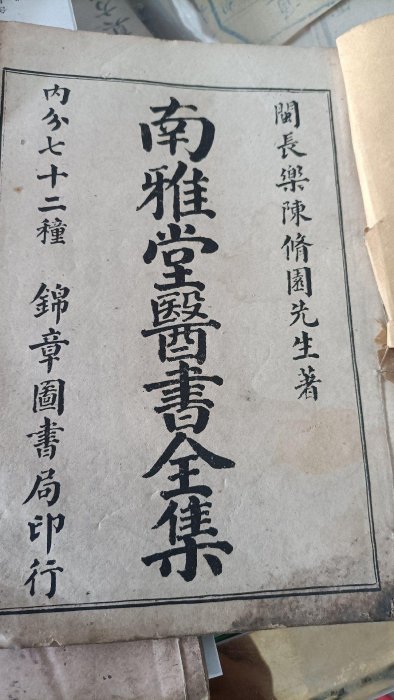 閩長樂陳脩園先生著
南雅堂醫書全集
內分七十二種　錦章圖書局印行